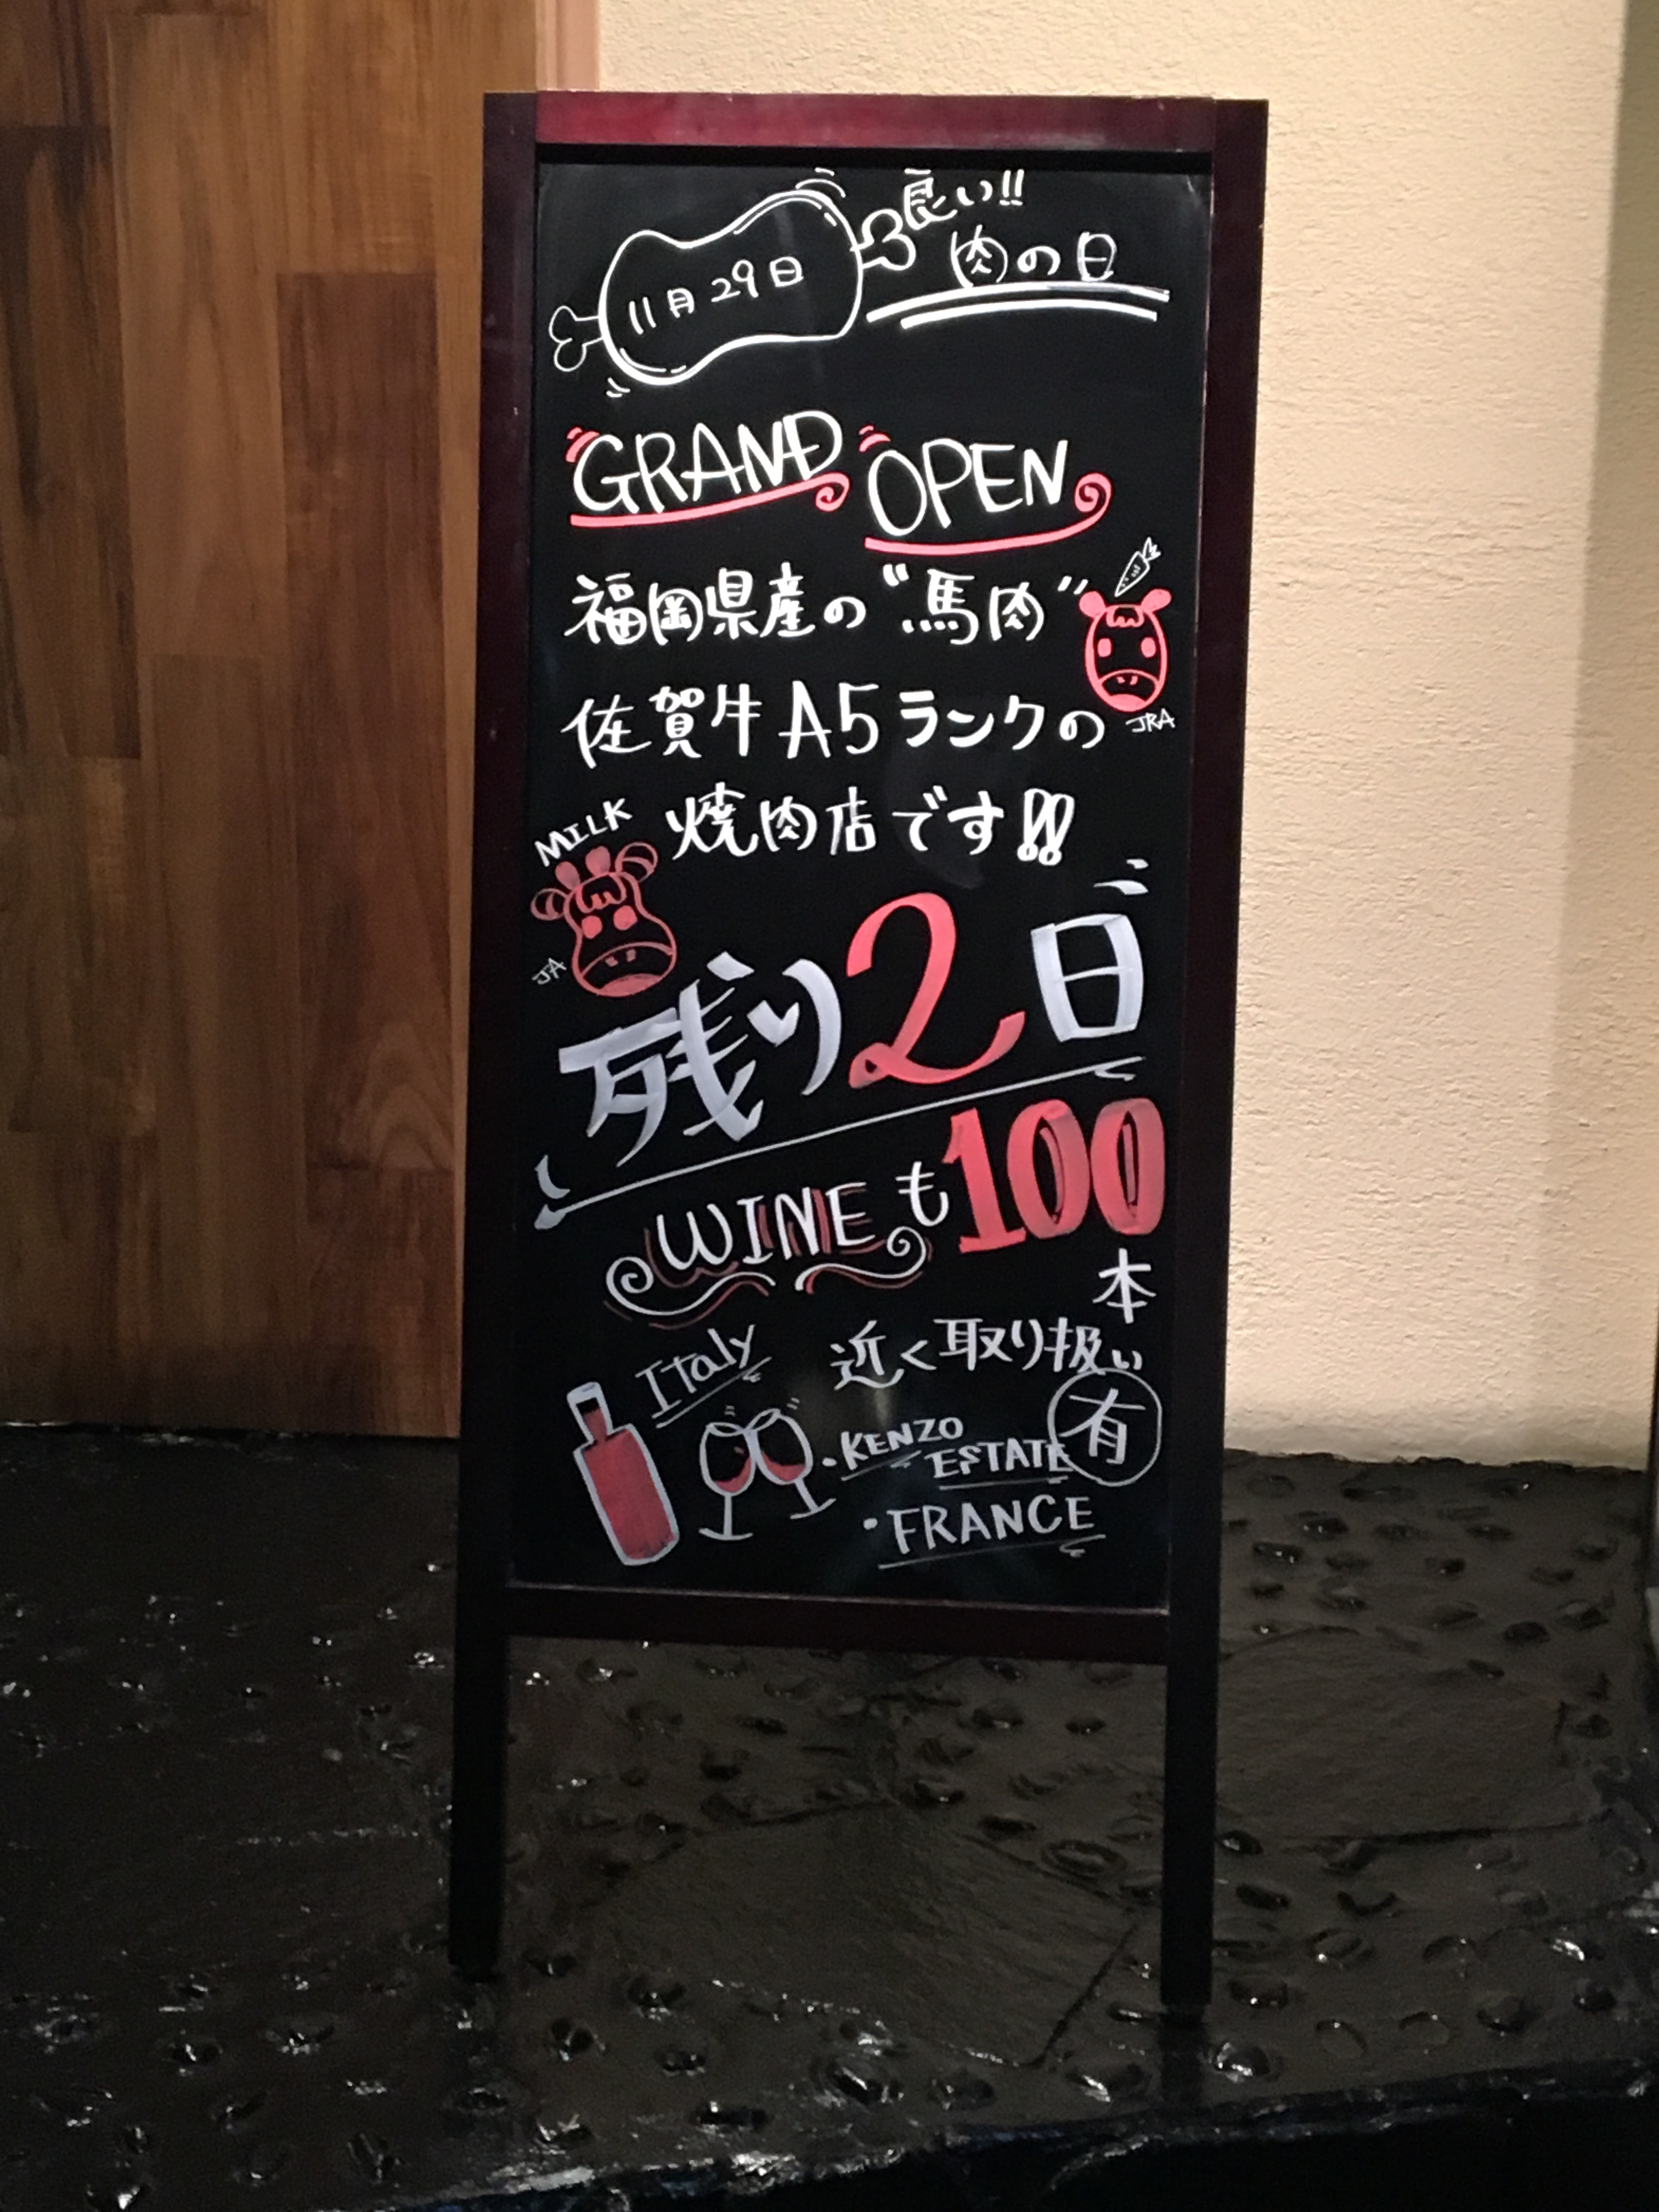 11月29日
良い!!
肉の日
GRAND OPEN
福岡県産の"馬肉"
JRA
佐賀牛A5ランクの
MILK
焼肉店です!!
JA
残り2日
WINEも100
本
近く取り扱い
有
Italy
・KENZO
ESTATE
・FRANCE